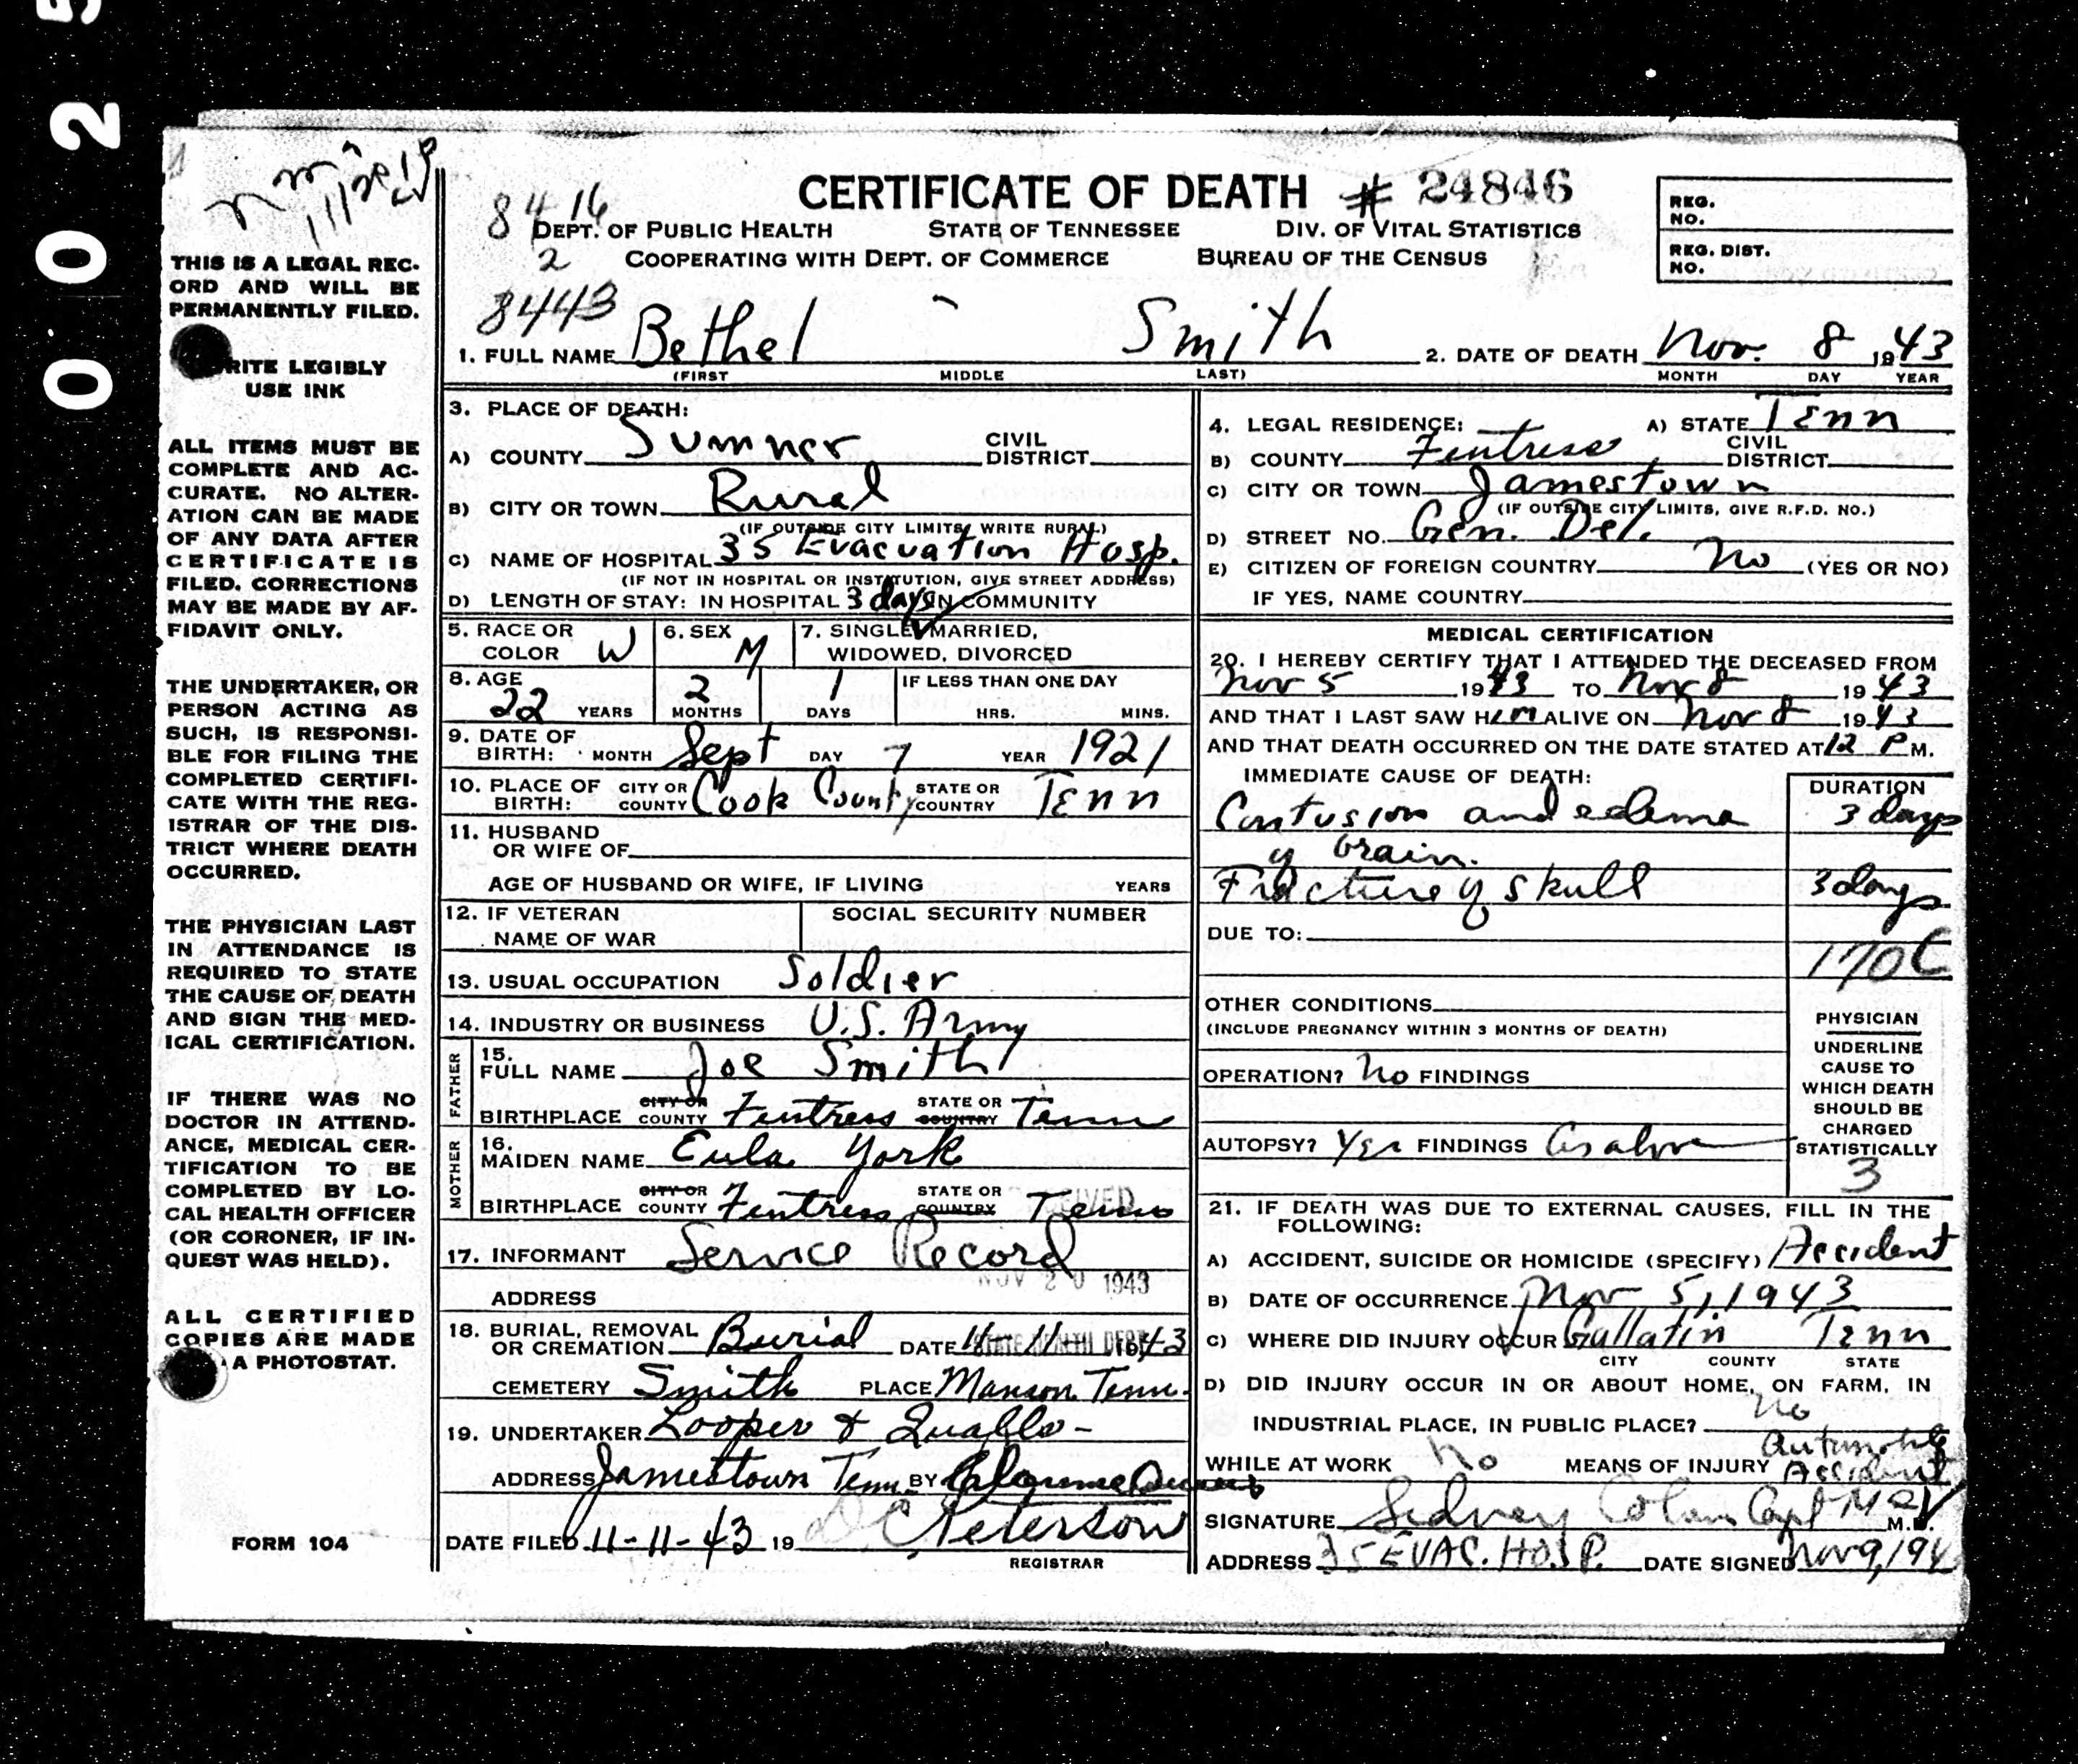 0025
THIS IS A LEGAL REC-
ORD AND WILL BE
PERMANENTLY FILED.
RITE LEGIBLY
USE INK
ALL ITEMS MUST BE
COMPLETE AND AC-
CURATE. NO ALTER-
ATION CAN BE MADE
OF ANY DATA AFTER
CERTIFICATE IS
FILED. CORRECTIONS
MAY BE MADE BY AF-
FIDAVIT ONLY.
THE UNDERTAKER, OR
PERSON ACTING AS
SUCH, IS RESPONSI-
BLE FOR FILING THE
COMPLETED CERTIFI-
CATE WITH THE REG-
ISTRAR OF THE DIS-
TRICT WHERE DEATH
OCCURRED.
THE PHYSICIAN LAST
IN ATTENDANCE IS
REQUIRED TO STATE
THE CAUSE OF DEATH
AND SIGN THE MED-
ICAL CERTIFICATION.
IF THERE WAS NO
DOCTOR IN ATTEND-
ANCE, MEDICAL CER-
TIFICATION TO BE
COMPLETED BY LO-
CAL HEALTH OFFICER
(OR CORONER, IF IN-
QUEST WAS HELD).
ALL CERTIFIED
COPIES ARE MADE
A PHOTOSTAT.
FORM 104
CERTIFICATE OF DEATH # 24846
84 16
DEPT. OF PUBLIC HEALTH STATE OF TENNESSEE DIV. OF VITAL STATISTICS
2 COOPERATING WITH DEPT. OF COMMERCE BUREAU OF THE CENSUS
REG.
NO.
REG. DIST.
NO.
8443
1. FULL NAME Bethel - Smith 2. DATE OF DEATH Nov. 8 1943
(FIRST MIDDLE LAST) MONTH DAY YEAR
3. PLACE OF DEATH:
A) COUNTY Sumner CIVIL DISTRICT
B) CITY OR TOWN Rural
(IF OUTSIDE CITY LIMITS, WRITE RURAL)
C) NAME OF HOSPITAL 35 Evacuation Hosp.
(IF NOT IN HOSPITAL OR INSTITUTION, GIVE STREET ADDRESS)
D) LENGTH OF STAY: IN HOSPITAL 3 days IN COMMUNITY
5. RACE OR COLOR W 6. SEX M 7. SINGLE, MARRIED,
WIDOWED, DIVORCED
8. AGE 22 YEARS 2 MONTHS 1 DAYS IF LESS THAN ONE DAY
HRS. MINS.
9. DATE OF BIRTH: MONTH Sept DAY 7 YEAR 1921
10. PLACE OF BIRTH: CITY OR COUNTY Cook County STATE OR COUNTRY Tenn
11. HUSBAND
OR WIFE OF
AGE OF HUSBAND OR WIFE, IF LIVING YEARS
12. IF VETERAN SOCIAL SECURITY NUMBER
NAME OF WAR
13. USUAL OCCUPATION Soldier
14. INDUSTRY OR BUSINESS U.S. Army
FATHER
15. FULL NAME Joe Smith
BIRTHPLACE CITY OR COUNTY Fentress STATE OR COUNTRY Tenn
MOTHER
16. MAIDEN NAME Eula York
BIRTHPLACE CITY OR COUNTY Fentress STATE OR COUNTRY Tenn
17. INFORMANT Service Record
NOV 20 1943
ADDRESS
18. BURIAL, REMOVAL
OR CREMATION Burial DATE 11-11-1943
STATE HEALTH DEPT
CEMETERY Smith PLACE Manson Tenn.
19. UNDERTAKER Looper & Qualls -
ADDRESS Jamestown Tenn. BY
DATE FILED 11-11-43 19 D C Peterson
REGISTRAR
4. LEGAL RESIDENCE: A) STATE Tenn
B) COUNTY Fentress CIVIL DISTRICT
C) CITY OR TOWN Jamestown
(IF OUTSIDE CITY LIMITS, GIVE R.F.D. NO.)
D) STREET NO. Gen. Del.
E) CITIZEN OF FOREIGN COUNTRY No (YES OR NO)
IF YES, NAME COUNTRY
MEDICAL CERTIFICATION
20. I HEREBY CERTIFY THAT I ATTENDED THE DECEASED FROM
Nov 5 1943 TO Nov 8 1943
AND THAT I LAST SAW HIM ALIVE ON Nov 8 1943
AND THAT DEATH OCCURRED ON THE DATE STATED AT 12 P M.
IMMEDIATE CAUSE OF DEATH: DURATION
Contusion and edema 3 days
of brain.
Fracture of skull 3 days
DUE TO:
170C
OTHER CONDITIONS
(INCLUDE PREGNANCY WITHIN 3 MONTHS OF DEATH)
OPERATION? No FINDINGS
AUTOPSY? Yes FINDINGS As above
PHYSICIAN
UNDERLINE
CAUSE TO
WHICH DEATH
SHOULD BE
CHARGED
STATISTICALLY
3
21. IF DEATH WAS DUE TO EXTERNAL CAUSES, FILL IN THE
FOLLOWING:
A) ACCIDENT, SUICIDE OR HOMICIDE (SPECIFY) Accident
B) DATE OF OCCURRENCE Nov 5, 1943
C) WHERE DID INJURY OCCUR Gallatin Tenn
CITY COUNTY STATE
D) DID INJURY OCCUR IN OR ABOUT HOME, ON FARM, IN
INDUSTRIAL PLACE, IN PUBLIC PLACE? No
WHILE AT WORK No MEANS OF INJURY Automobile Accident
SIGNATURE Sidney Capt M.D.
ADDRESS 35 EVAC. HOSP. DATE SIGNED Nov 9, 194